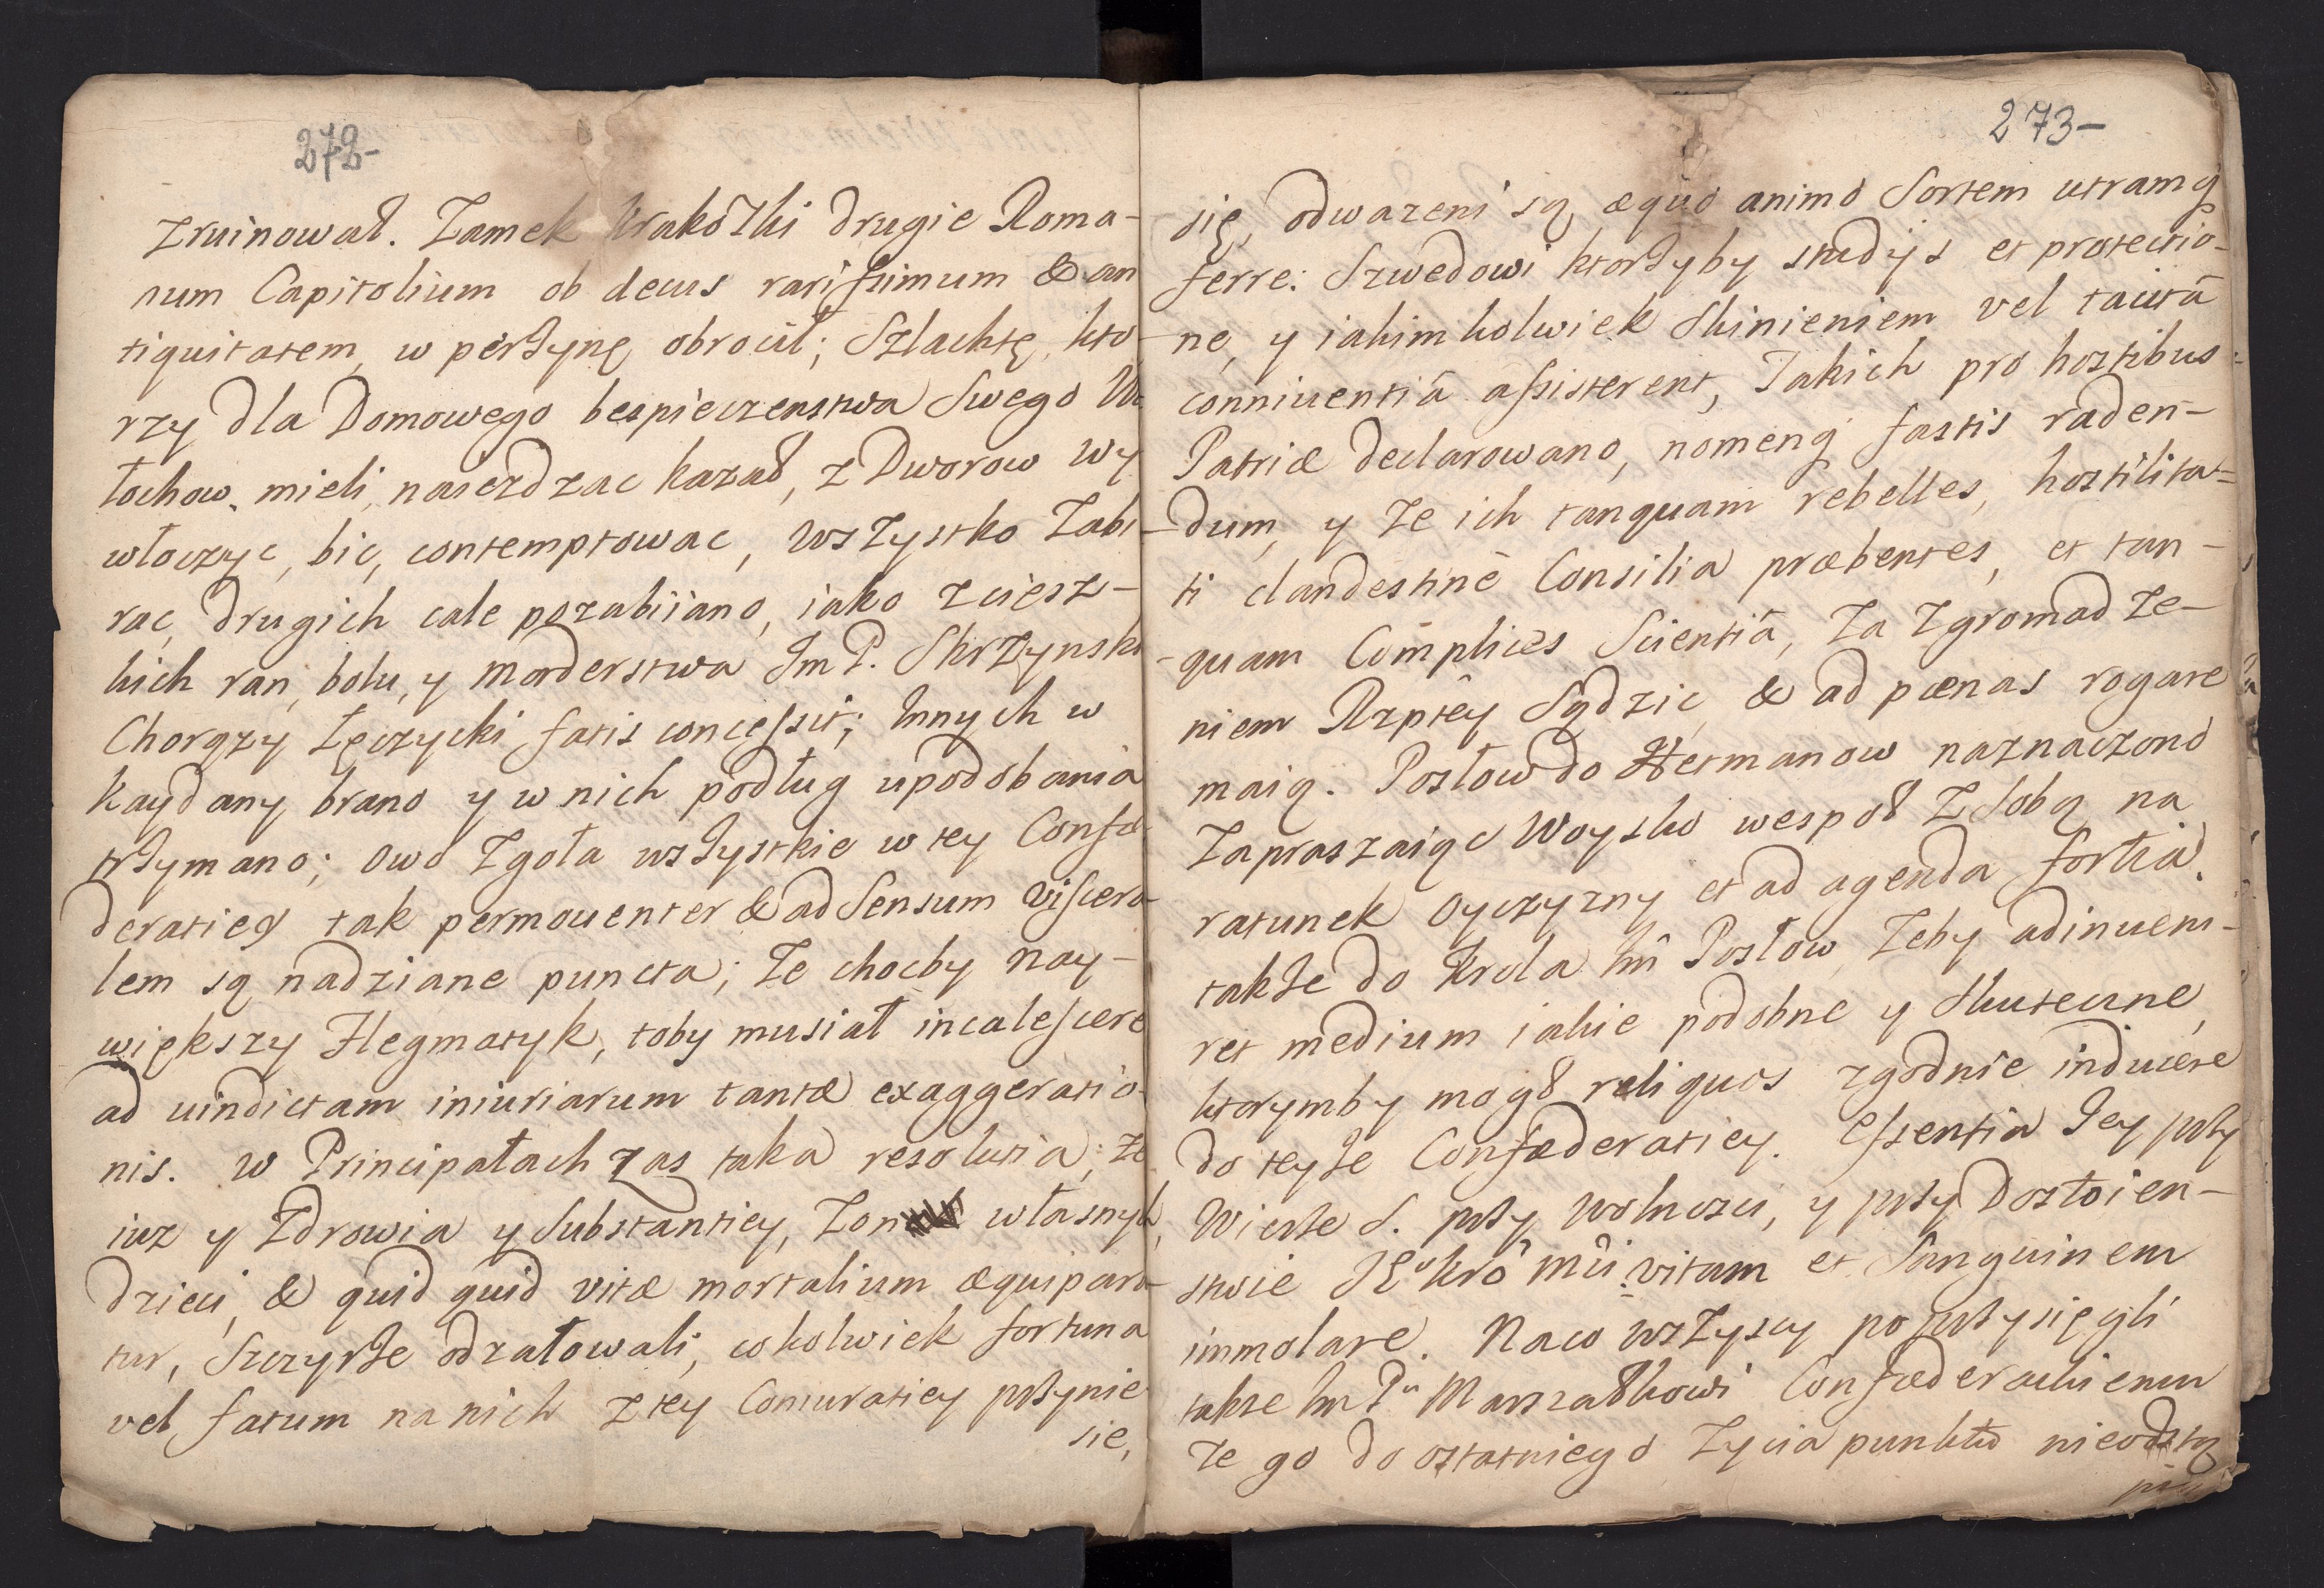 272-
zruinował. Zamek Krakowski drugie Roma-
num Capitolium ob decus rarissimum & an
tiquitatem, w perzynę obrocił; Szlachtę, kto-
rzy dla Domowego bespieczenstwa Swego Wo
łochow mieli, naiezdzac kazał, z Dworow wy
włoczyc, bic, contemptowac, wszystko Zabi
rac, drugich cale pozabiiano, iako zciesz-
kich ran, bolu, y morderstwa Im P. Skrzynski
Chorązy Łęczycki fatis concessit; Innych w
kaydany brano y w nich podług upodobania
trzymano; Owo Zgoła wszystkie w tey Confæ-
deratiey tak permouenter & ad Sensum viscera-
lem są nadziane puncta; ze chocby nay-
większy Flegmatyk, toby musiał incalescere
ad uindictam iniuriarum tantæ exaggeratio-
nis. W Principałach zas taka resolutia; ze
iuz y Zdrowia y Substantiey, Zon własnych,
dzieci, & quid quid vitæ mortalium æquipara-
tur, Szczyrze odzałowali, cokolwiek fortuna
vel fatum na nich z tey Coniuratiey przynie
sie,
273-
się, odwazeni są æquo animo Sortem utramq
ferre: Szwedowi ktorzyby studijs et protectio-
ne, y iakimkolwiek Skinieniem vel tacitâ
conniuentiâ assisterent, Takich pro hostibus
Patriæ declarowano, nomenq fastis raden-
dum, y ze ich tanquam rebelles, hostilita-
ti clandestinè Consilia præbentes, et tan-
quam Complices Scientiâ, Za Zgromadze-
niem Rzptey Sądzic, & ad pœnas rogare
maią. Posłow do Hetmanow naznaczono
Zapraszaiąc Woysko wespoł Z Sobą na
ratunek Oyczyzny et ad agenda fortia.
takze do Krola Im Posłow, Zeby adinueni-
ret medium iakie podobne y Skuteczne,
ktorymby mogł reliquos zgodnie inducere
do teyze Confæderatiey. Essentia Jey przy
Wierze S. przy Wolnosci, y przy Dostoien-
stwie Kro Mci vitam et Sanguinem
immolare. Naco wszyscy poprzysięgli
takze Im Pu Marszałkowi Confæderackiemu
ze go do ostatniego Zycia punktu nieodstą